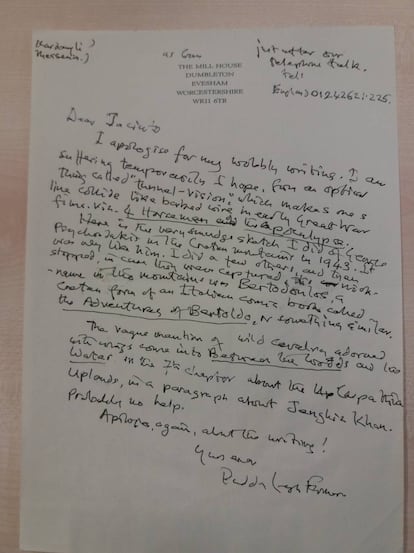 just after our
telephone talk.
Tel:
THE MILL HOUSE
DUMBLETON
EVESHAM
WORCESTERSHIRE
WR11 6TR
Dear Jacinto
I apologise for my wobbly writing. I am
suffering temporarily I hope, from an optical
thing called "tunnel-vision," which makes one's
line collide like barbed wire in early Great War
films. viz. 4 Horsemen of the Apocalypse.
Here is the very smudgy sketch I did of George
Psychoundakis in the Cretan mountains in 1943. It
was very like him. I did a few others, and then
stopped, in case they were captured. My nick-
name in the mountains was Bertodoulos, a
Cretan form of an Italian comic book called
the Adventures of Bertoldo, or something similar.
The vague mention of wild cavalry adorned
with wings come into Between the Woods and the
Water, in the 7th chapter about the Carpathian
Uplands, in a paragraph about Jenghiz Khan.
Probably no help.
Apologies, again, about the writing!
Yours ever
Paddy Leigh Fermor